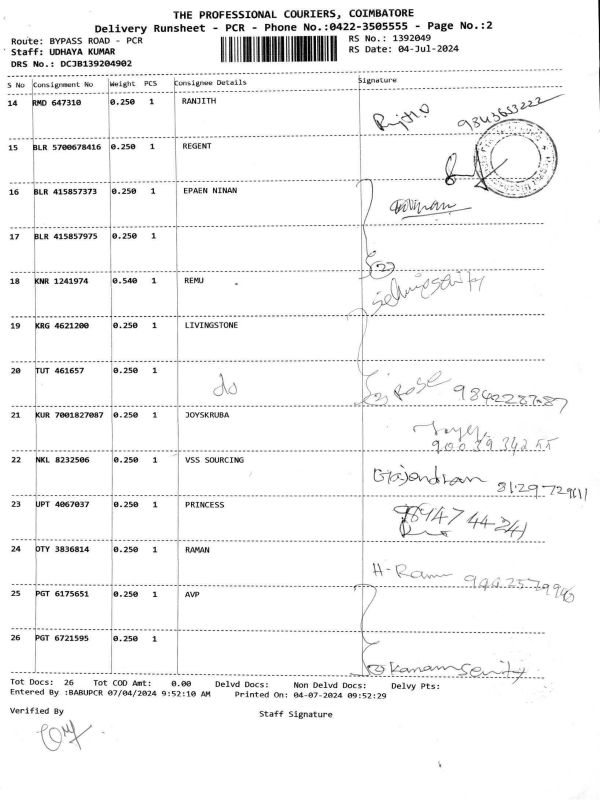 THE PROFESSIONAL COURIERS, COIMBATORE
Delivery Runsheet - PCR - Phone No.:0422-3505555 - Page No.:2
Route: BYPASS ROAD - PCR RS No.: 1392049
Staff: UDHAYA KUMAR RS Date: 04-Jul-2024
DRS No.: DCJB139204902
S No Consignment No Weight PCS Consignee Details Signature
14 RMD 647310 0.250 1 RANJITH 9843653222
15 BLR 5700678416 0.250 1 REGENT
16 BLR 415857373 0.250 1 EPAEN NINAN
17 BLR 415857975 0.250 1 2
18 KNR 1241974 0.540 1 REMU
19 KRG 4621200 0.250 1 LIVINGSTONE
20 TUT 461657 0.250 1 do Rose
21 KUR 7001827087 0.250 1 JOYSKRUBA
22 NKL 8232506 0.250 1 VSS SOURCING Gajendran
23 UPT 4067037 0.250 1 PRINCESS
24 OTY 3836814 0.250 1 RAMAN H-Raman
25 PGT 6175651 0.250 1 AVP
26 PGT 6721595 0.250 1
Tot Docs: 26 Tot COD Amt: 0.00 Delvd Docs: Non Delvd Docs: Delvy Pts:
Entered By :BABUPCR 07/04/2024 9:52:10 AM Printed On: 04-07-2024 09:52:29
Verified By Staff Signature